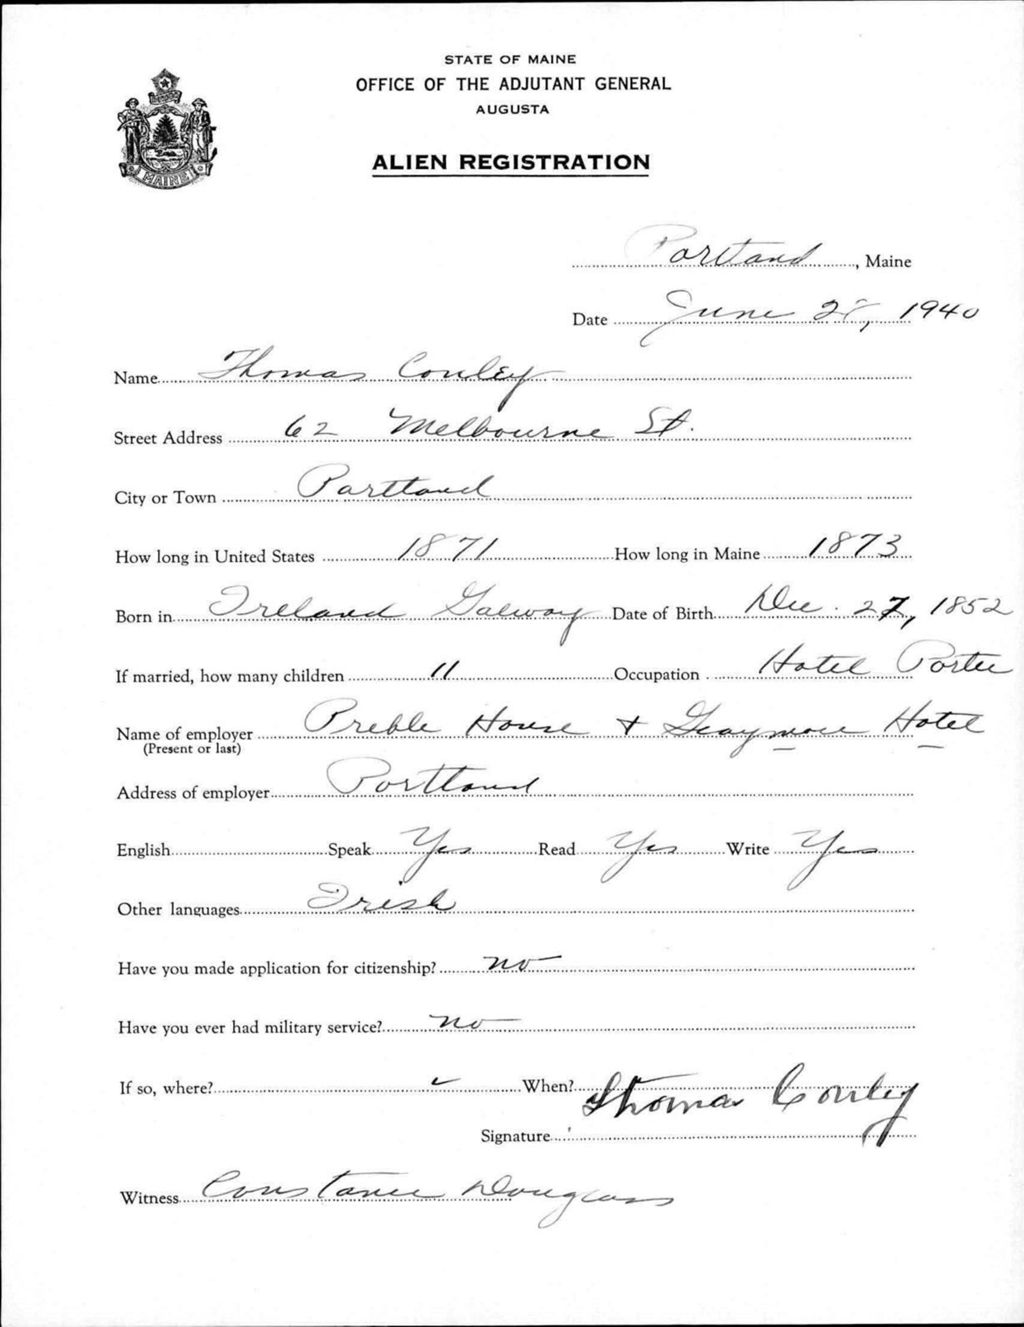 STATE OF MAINE
OFFICE OF THE ADJUTANT GENERAL
AUGUSTA
MAINE
ALIEN REGISTRATION
Portland, Maine
Date June 28, 1940
Name Thomas Conley
Street Address 62 Melbourne St.
City or Town Portland
How long in United States 1871 How long in Maine 1873
Born in Ireland Galway Date of Birth Dec. 27, 1852
If married, how many children 11 Occupation Hotel Porter
Name of employer Preble House + Graymore Hotel
(Present or last)
Address of employer Portland
English Speak Yes Read Yes Write Yes
Other languages Irish
Have you made application for citizenship? no
Have you ever had military service? no
If so, where? When?
Signature Thomas Conley
Witness Constance Douglass